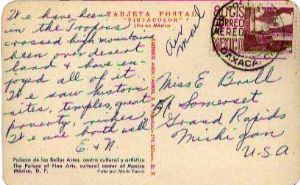 TARJETA POSTAL
"VISTACOLOR"
We have been
in the Tropics
crossed high mountains
been on desert
land & have en-
joyed all of it.
We saw historic
sites, temples, great
poverty, riches
We are both well
E. & N.
Palacio de las Bellas Artes, centro cultural y artístico
The Palace of Fine Arts, cultural center of Mexico
México, D. F.
Air
Mail
80 CTS
CORREO
AEREO
MEXICO
OAXACA
Miss E. Brall
Somerset
Grand Rapids
Michigan
U.S.A.